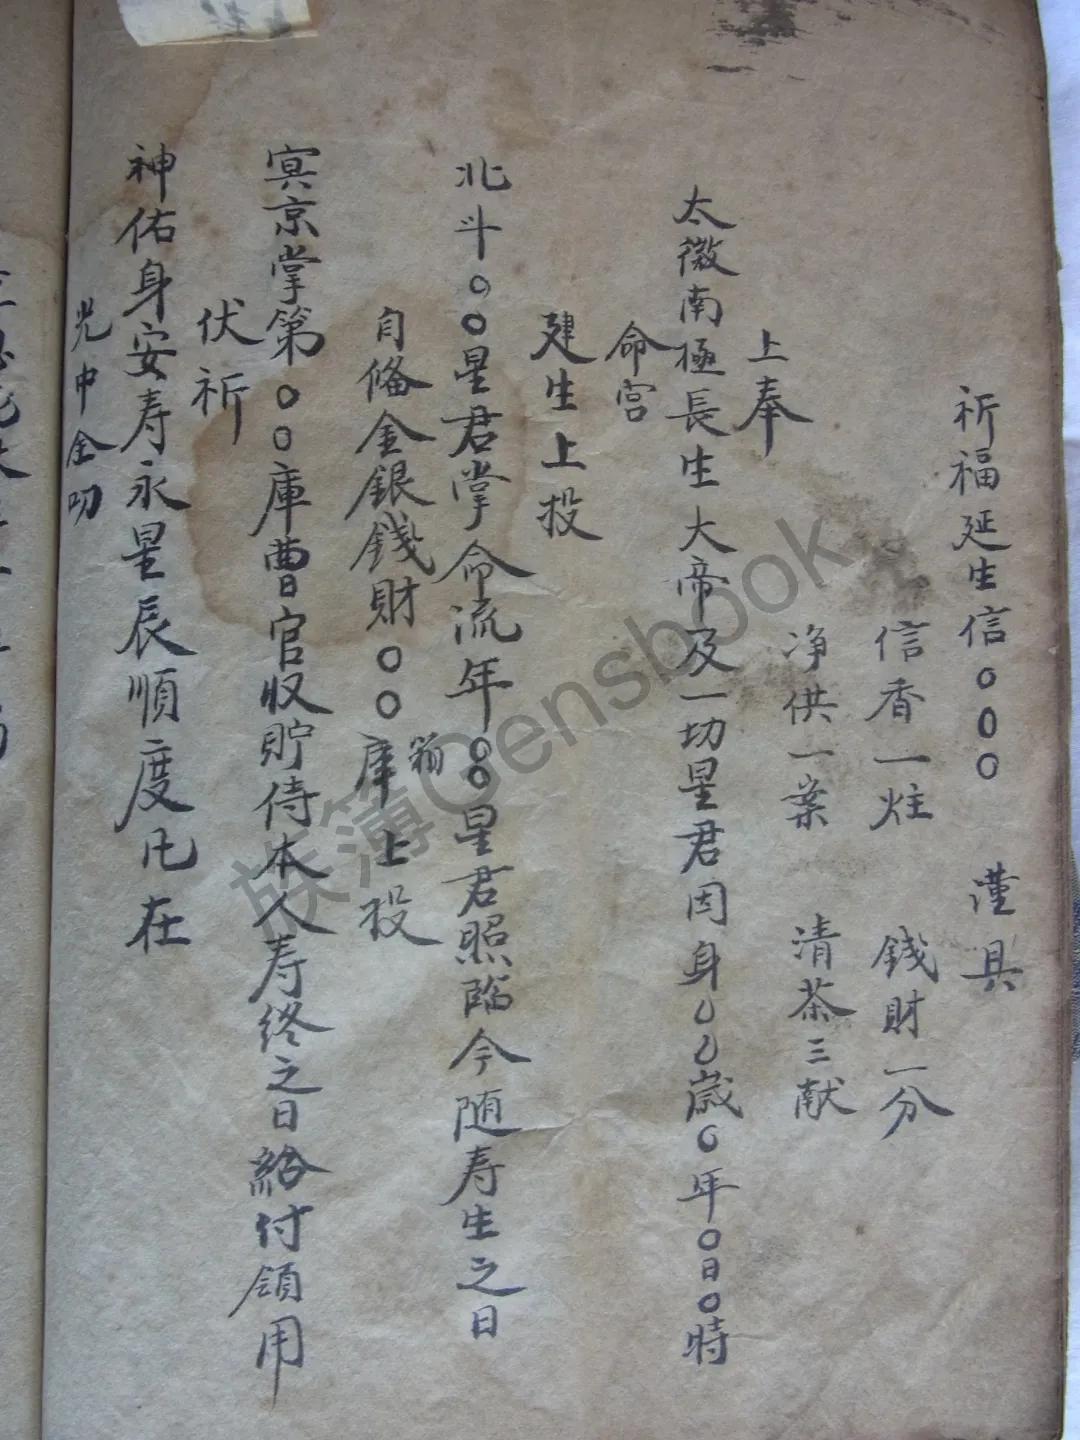 祈福延生信〇〇〇　謹具
信香一炷　錢財一分
净供一案　清茶三献
上奉
太微南極長生大帝及一切星君因身〇〇歲〇年〇日〇時
命宫
建生上投
北斗〇〇星君掌命流年〇〇星君照臨今随寿生之日
自俻金銀錢財〇〇箱庫上投
冥京掌第〇〇庫曹官収貯侍本人寿终之日給付領用
伏祈
神佑身安寿永星辰順度凢在
光中全叨
族簿Gensbook